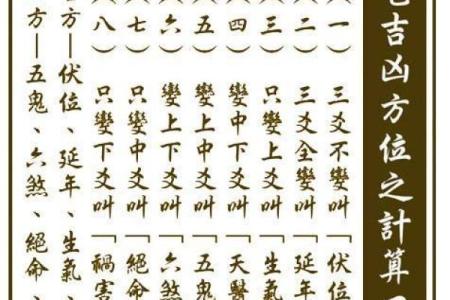 吉凶方位之計算
（一）三爻不變叫「伏位
（二）三爻全變叫「延年
（三）只變上爻叫「生氣
（四）變中下爻叫「天醫
（五）變上中爻叫「五鬼
（六）變上下爻叫「六煞
（七）只變中爻叫「絕命
（八）只變下爻叫「禍害
方—伏位、延年、生氣、
方—五鬼、六煞、絕命、